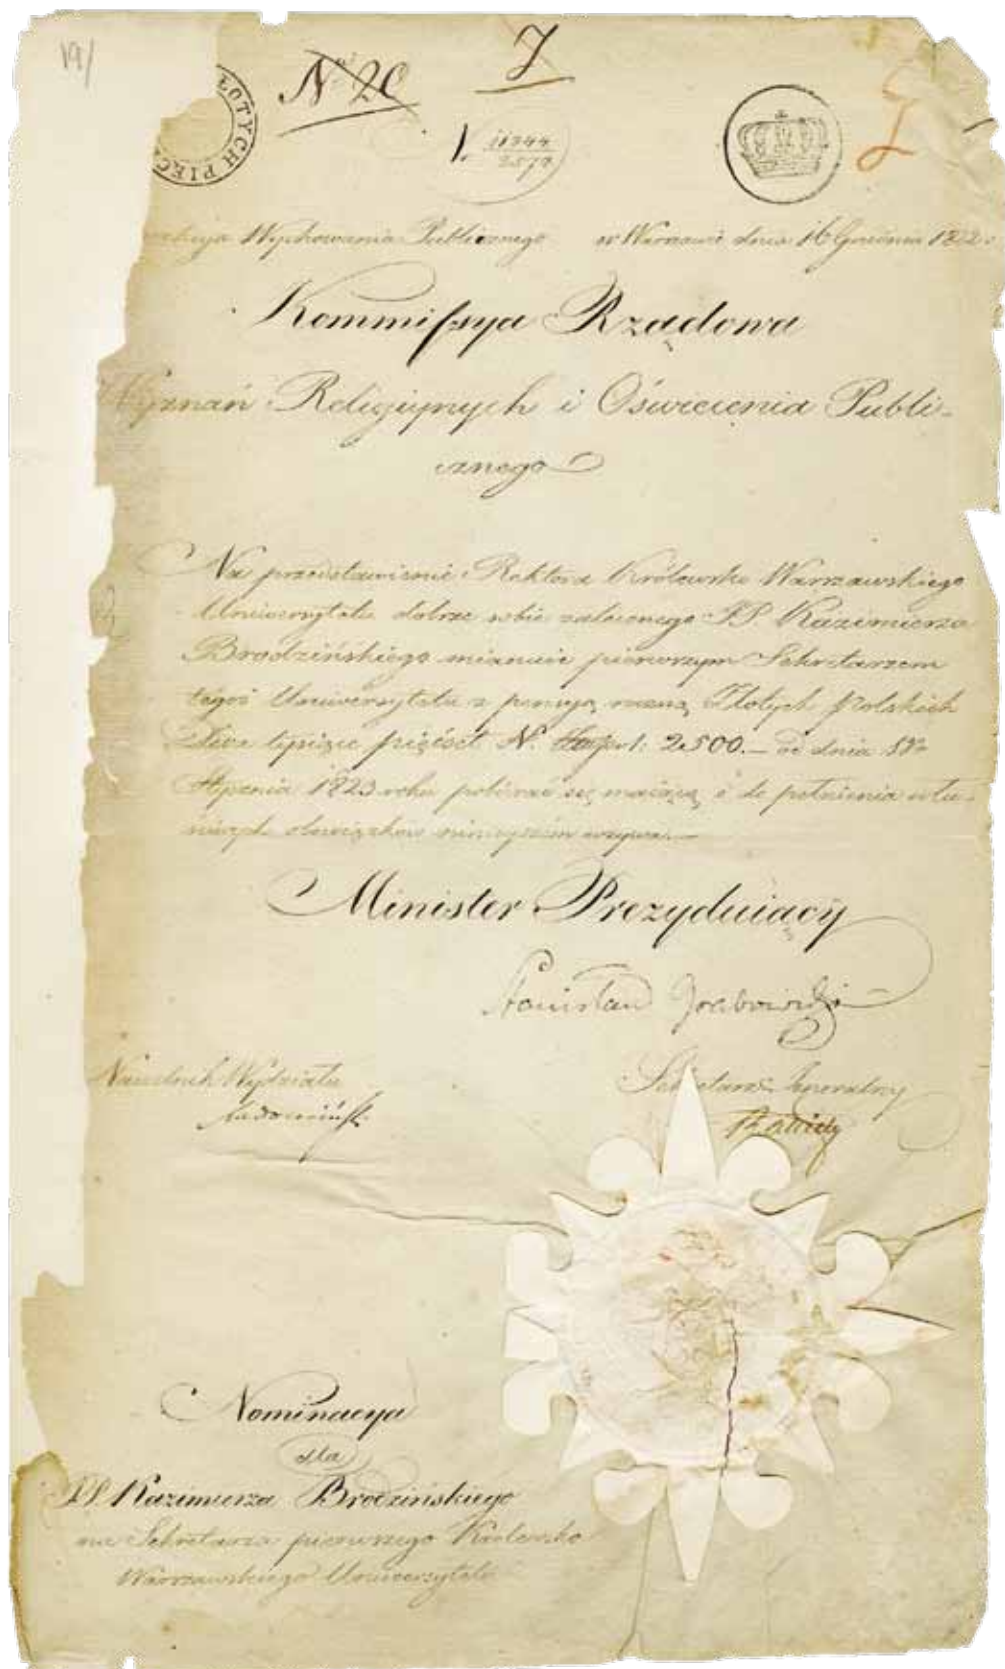 19/
ŁOTYCH PIĘĆ
N° 20
J
1. 11944
2579
Wychowania Publicznego w Warszawie dnia 16 Grudnia 1822 r
Kommissya Rządowa
Wyznań Religiynych i Oświecenia Publi-
cznego
Na przedstawienie Rektora Królewsko Warszawskiego
Uniwersytetu dobrze sobie zaleconego JP. Kazimierza
Brodzińskiego mianuie pierwszym Sekretarzem
tegoż Uniwersytetu z pensyą roczną Złotych Polskich
Dwa tysiące pięćset N. 2500.— od dnia 1go
Stycznia 1823 roku pobierać się maiącą i do pełnienia wła-
ściwych obowiązków ninieyszém wzywa.—
Minister Prezyduiący
Stanisław Grabowski
Naczelnik Wydziału
Sekretarz Jeneralny
Nominacya
dla
JP. Kazimierza Brodzińskiego
na Sekretarza pierwszego Królewsko
Warszawskiego Uniwersytetu